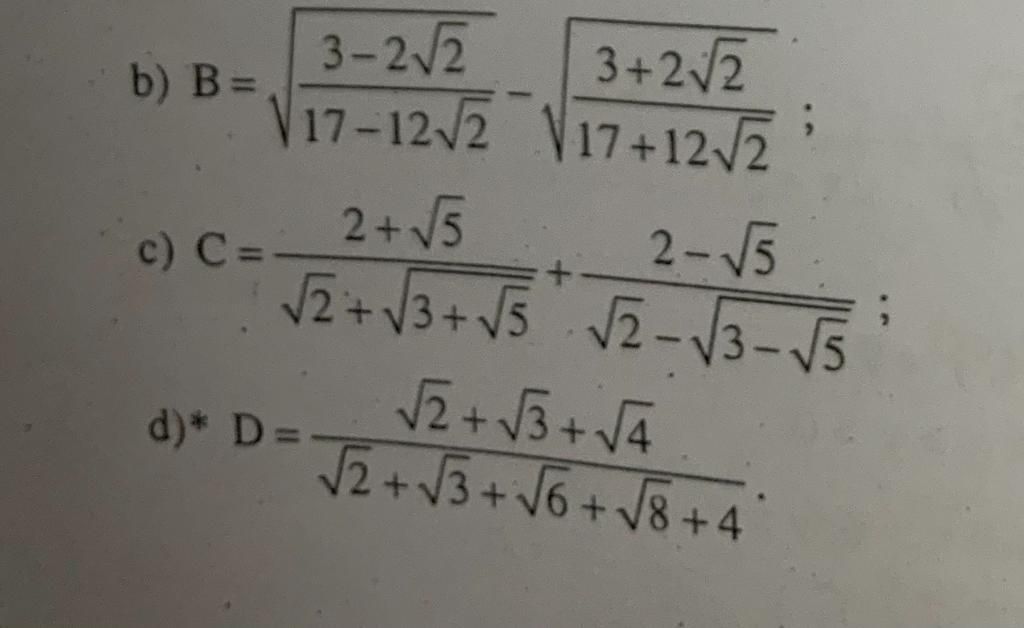 b) B = √((3 − 2√2)/(17 − 12√2)) − √((3 + 2√2)/(17 + 12√2)) ;
c) C = (2 + √5)/(√2 + √(3 + √5)) + (2 − √5)/(√2 − √(3 − √5)) ;
d)* D = (√2 + √3 + √4)/(√2 + √3 + √6 + √8 + 4) .